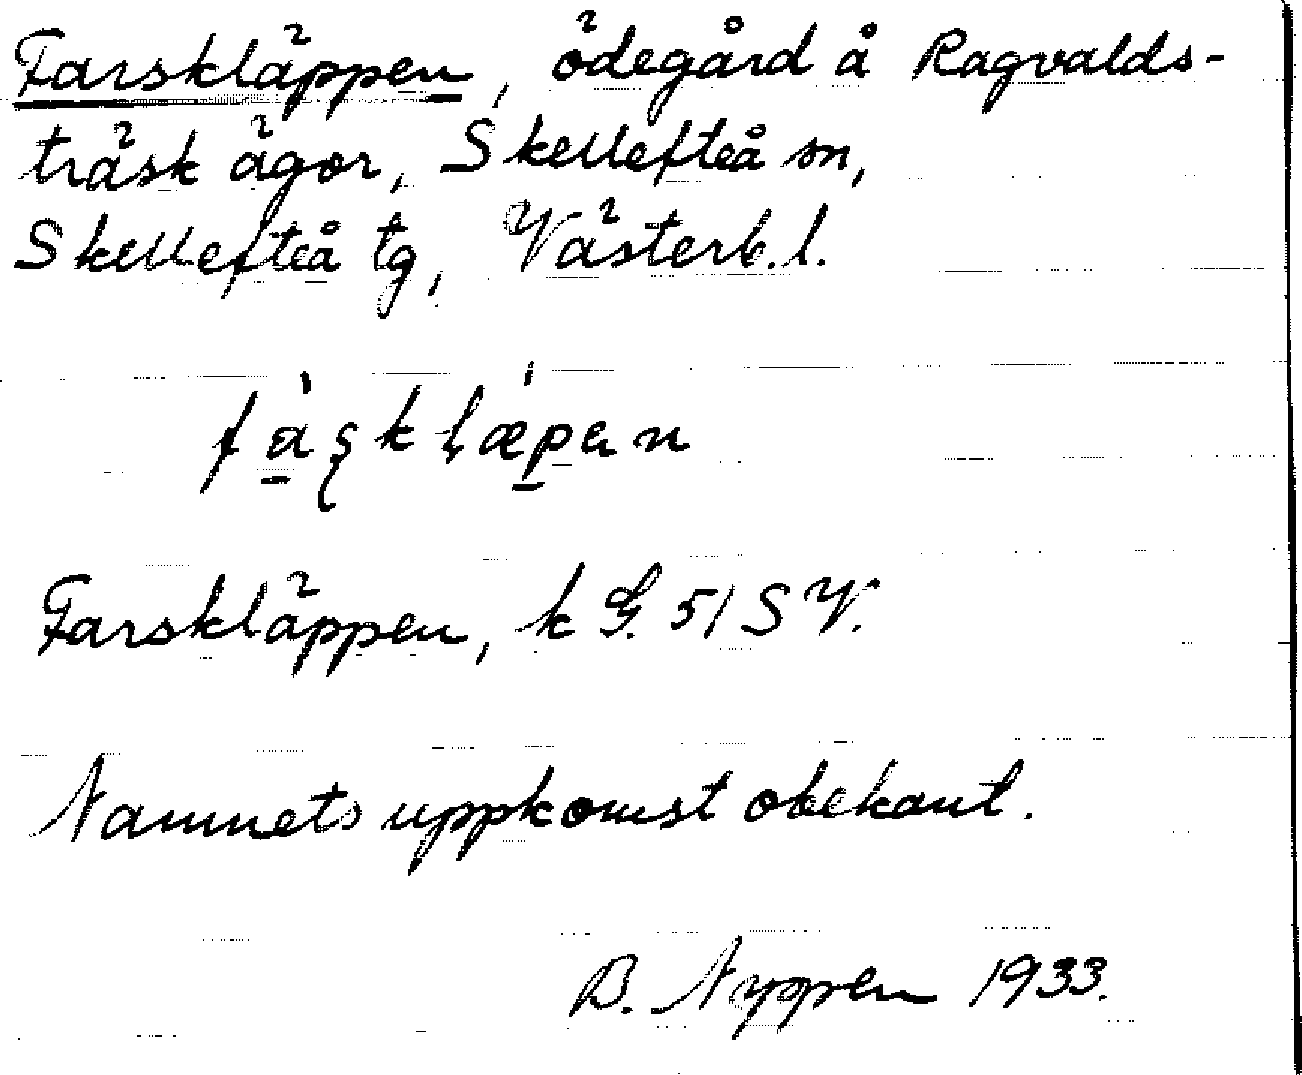 Farskläppen, ödegård å Ragvalds-
träsk ägor, Skellefteå sn,
Skellefteå tg, Västerb.l.
Farskläppen, k G. 51 SV.
Namnets uppkomst obekant.
B. Nyppen 1933.